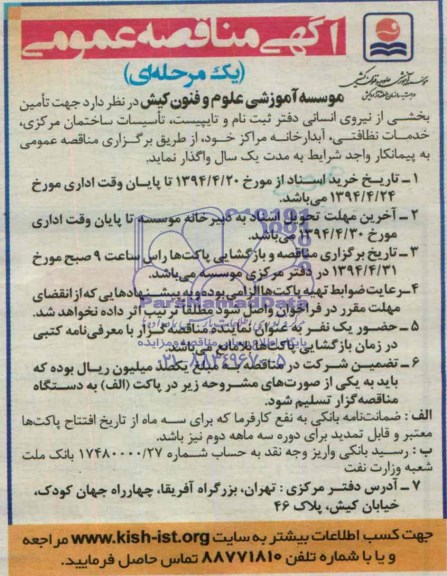 آگهی مناقصه عمومی
(یک مرحله‌ای)
موسسه آموزشی علوم و فنون کیش در نظر دارد جهت تأمین
بخشی از نیروی انسانی دفتر ثبت نام و تایپیست، تأسیسات ساختمان مرکزی،
خدمات نظافتی، آبدارخانه مراکز خود، از طریق برگزاری مناقصه عمومی
به پیمانکار واجد شرایط به مدت یک سال واگذار نماید.
۱ - تاریخ خرید اسناد از مورخ ۱۳۹۴/۴/۲۰ تا پایان وقت اداری مورخ
۱۳۹۴/۴/۲۴ می‌باشد.
۲ - آخرین مهلت تحویل اسناد به دبیرخانه موسسه تا پایان وقت اداری
مورخ ۱۳۹۴/۴/۳۰ می‌باشد.
۳ - تاریخ برگزاری مناقصه و بازگشایی پاکت‌ها راس ساعت ۹ صبح مورخ
۱۳۹۴/۴/۳۱ در دفتر مرکزی موسسه می‌باشد.
۴ - رعایت ضوابط تهیه پاکت‌ها الزامی بوده و به پیشنهادهایی که از انقضای
مهلت مقرر در فراخوان واصل شود مطلقا ترتیب اثر داده نخواهد شد.
ParsNamadData
۵ - حضور یک نفر به عنوان نماینده مناقصه گزار با معرفی‌نامه کتبی
در زمان بازگشایی پاکت‌ها بلامانع می‌باشد.
پایگاه اطلاع رسانی مناقصه و مزایده
۰۲۱-۸۸۳۴۹۶۷۰-۵
۶ - تضمین شرکت در مناقصه به مبلغ یکصد میلیون ریال بوده که
باید به یکی از صورت‌های مشروحه زیر در پاکت (الف) به دستگاه
مناقصه‌گزار تسلیم شود.
الف : ضمانت‌نامه بانکی به نفع کارفرما که برای سه ماه از تاریخ افتتاح پاکت‌ها
معتبر و قابل تمدید برای دوره سه ماهه دوم نیز باشد.
ب : رسید بانکی واریز وجه نقد به حساب شماره ۱۷۴۸۰۰۰۰/۲۷ بانک ملت
شعبه وزارت نفت
۷ - آدرس دفتر مرکزی : تهران، بزرگراه آفریقا، چهارراه جهان کودک،
خیابان کیش، پلاک ۴۶
جهت کسب اطلاعات بیشتر به سایت www.kish-ist.org مراجعه
و یا با شماره تلفن ۸۸۷۷۱۸۱۰ تماس حاصل فرمایید.